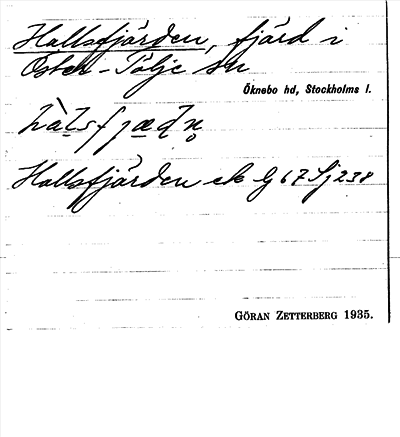 Hallsfjärden, fjärd i
Öster-Tälje sn
Öknebo hd, Stockholms l.
hàlsfjædn̥
Hallsfjärden ek G 67 Sj 238
GÖRAN ZETTERBERG 1935.